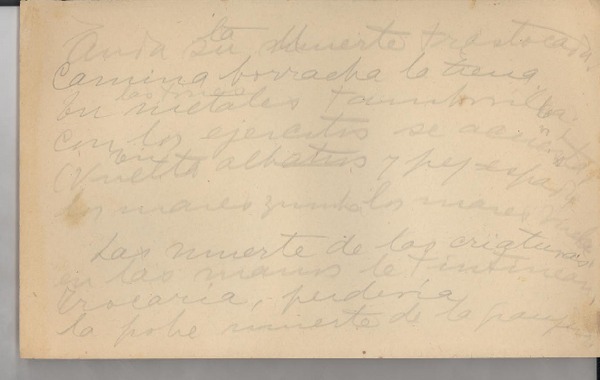 la
Anda su Muerte trastocada,
Camina borracha la tierra
las mesas
en metales tamborilea
con los ejercitos se acuesta
en
(Vuelta albatros y pez espada
los mares zumba los mares
Las muerte de las criaturas
en las manos le tintinean
trocaria, perderia
la pobre muerte de la